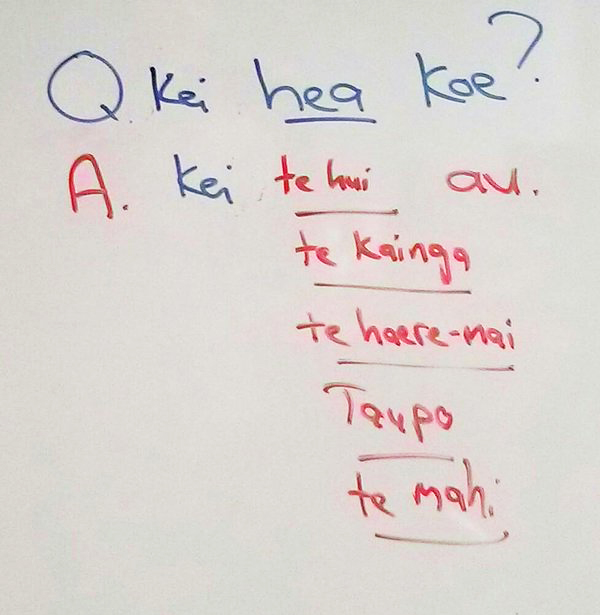 Q. Kei hea koe?
A. Kei te hui au.
te Kainga
te haere-mai
Taupo
te mahi